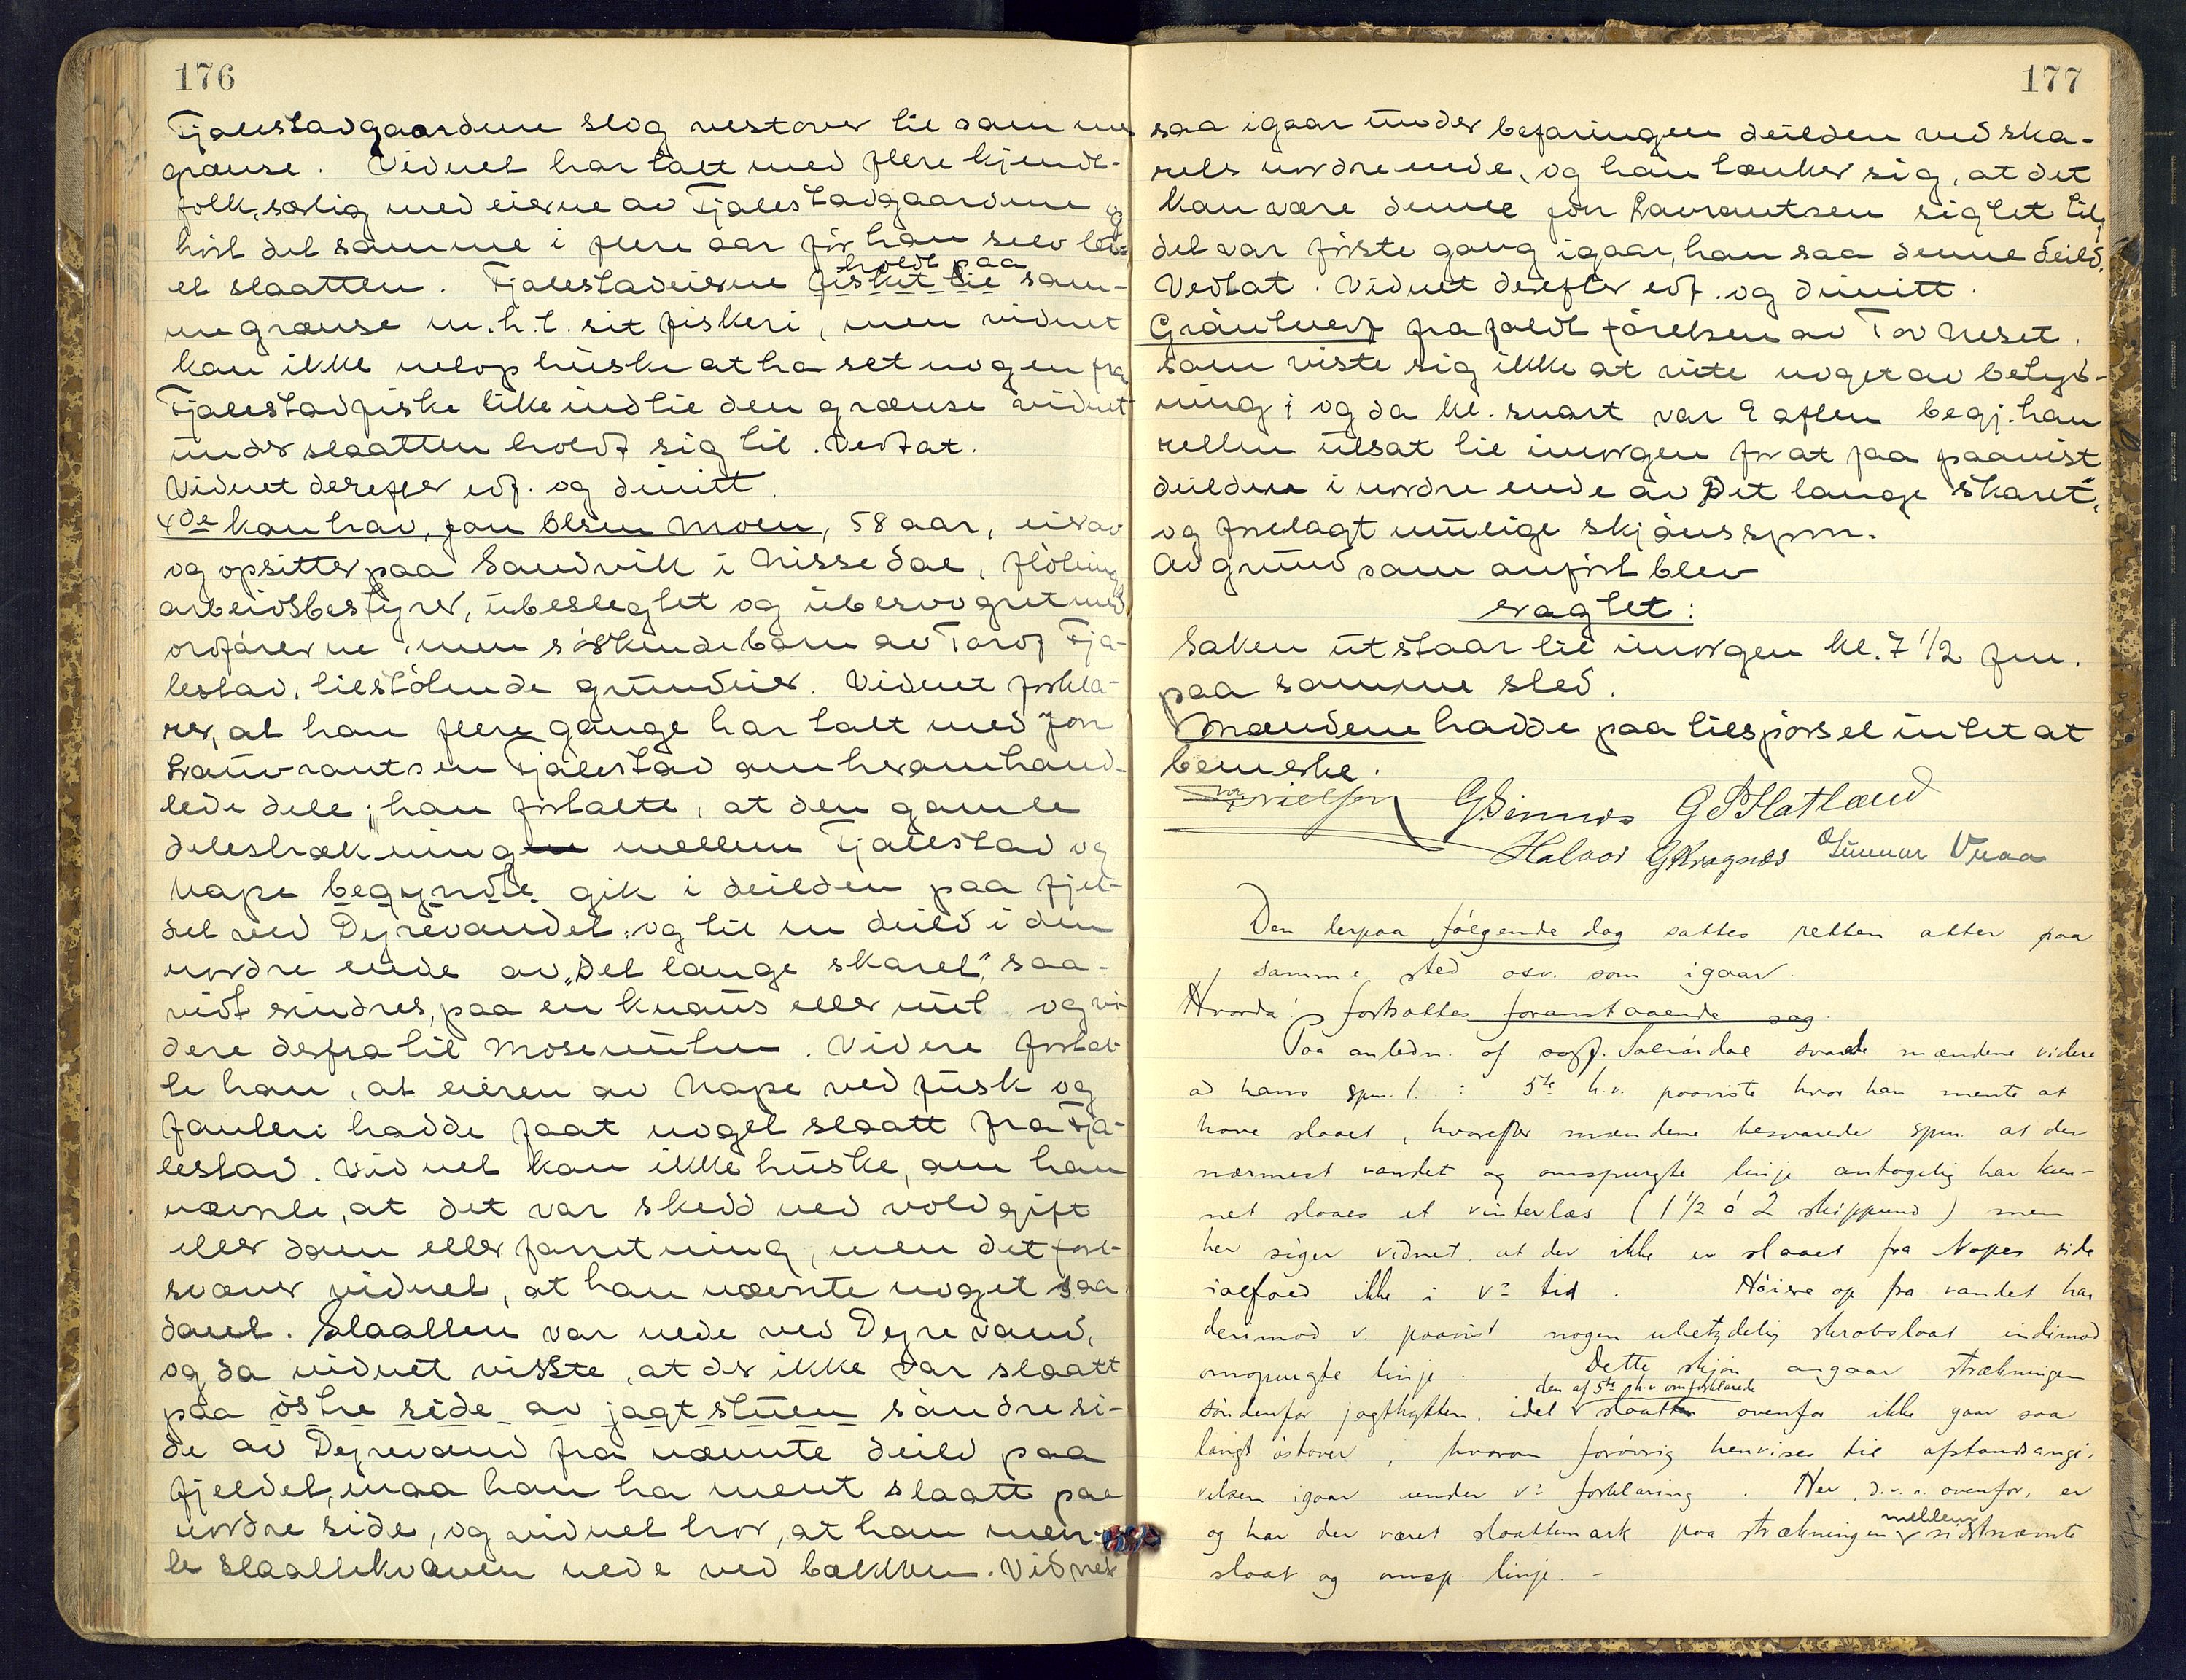 176
Fjalestadgaardene slog vestover til samme
grænse. Vidnet har talt med flere kjendt-
folk, særlig med eierne av Fjalestadgaardene og
hørt det samme i flere aar før han selv lei-
et slaatten. Fjalestadeierne fisket til holdt paa sam-
me grænse m.h.t. sit fiskeri, men vidnet
kan ikke netop huske at ha set nogen fra
Fjalestad fiske like indtil den grænse vidnet
under slaatten holdt sig til. Vedtat.
Vidnet derefter edf. og dimitt.
4de kontrav, Jon Olsen Moen, 58 aar, eier av
og opsitter paa Sandvik i Nissedal, fløtning
arbeidsbestyrer, ubeslegtet og ubesvogret med
ordførerne, men søskendebarn av Tarof Fja-
lestad, tilstøtende grundeier. Vidnet forkla-
rer, at han flere gange har talt med Jon
Lauvrantsen Fjalestad om heromhand-
lede dele; han fortalte, at den gamle
delestrækning mellem Fjalestad og
Nape begyndte gik i deilden paa fjel-
det ved Dyrevandet og til en deild i den
nordre ende av "Det lange skaret", saa-
vidt erindres, paa en knaus eller nut og vi-
dere derfra til Mosenuten. Videre fortal-
te han, at eieren av Nape ved fusk og
fanteri hadde faat noget slaatt fra Fja-
lestad. Vidnet kan ikke huske, om han
nævnte, at det var skedd ved voldgift
eller dom eller forretning, men det fore-
svæver vidnet, at han nævnte noget saa
dant. Slaatten var nede ved Dyrevand,
og da vidnet visste, at der ikke var slaatt
paa østre side av jagtstuen søndre si-
de av Dyrevand fra nævnte deild paa
fjeldet, maa han ha ment slaatt paa
nordre side, og vidnet tror, at han men-
te slaattekvæven nede ved bækken. Vidnet
177
saa igaar under befaringen deilden ved ska-
rets nordre ende, og han tænker sig, at det
kan være denne Jon Lavrantsen sigtet til;
det var første gang igaar, han saa denne deild.
Vedtat. Vidnet derefter edf. og dimitt.
Grøntvedt frafaldt førelsen av Tov Neset,
som viste sig ikke at vite noget av betyd-
ning; og da kl. snart var 9 aften begj. han
retten utsat til imorgen for at faa paavist
deildene i nordre ende av "Det lange skaret",
og forelagt mulige skjønsspm.
Av grund som anført blev
eragtet:
Saken utstaar til imorgen kl. 7 1/2 fm.
paa samme sted.
Mændene hadde paa tilspørsel intet at
bemerke.
Nielsen G. Simnes G S Hatland
Halvor G Kragnæs Gunnar Vraa
Den derpaa følgende dag sattes retten atter paa
samme sted osv. som igaar.
Hvorda: fortsattes foranstaaende sag.
Paa anledn. af sagf. svarte mændene videre
ad hans spm. 1. : 5te k.v. paaviste hvor han mente at
have slaaet, hvorefter mændene besvarede spm. at der
nærmest vandet og omspurgte linje antagelig har kun-
net slaaes et vinterlæs (1 1/2 á 2 skippund) men
her siger vidnet, at der ikke er slaaet fra Napes side
ialfald ikke i v's tid. Høiere op fra vandet har
derimod v. paavist nogen ubetydelig skrabslaat indimod
omspurgte linje. Dette skjøn angaar strækningen
søndenfor jagthytten, idet den af 5te k.v. omforklarede slaatten ovenfor ikke gaar saa
langt østover, hvorom forøvrig henvises til afstandsangi-
velsen igaar under v's forklaring. Her, d.v.s. ovenfor, er
og har der været slaattemark paa strækningen mellem sidstnævnte
slaat og omsp. linje. -